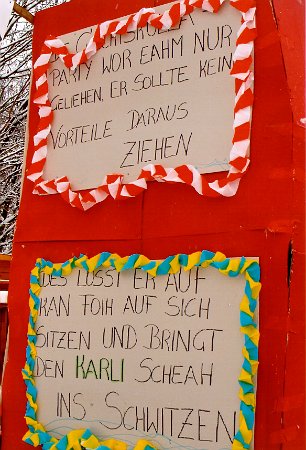 PARTY WOR EAHM NUR
GELIEHEN, ER SOLLTE KEIN
VORTEILE DARAUS
ZIEHEN
DES LOSST ER AUF
KAN FOIH AUF SICH
SITZEN UND BRINGT
DEN KARLI SCHEAH
INS SCHWITZEN